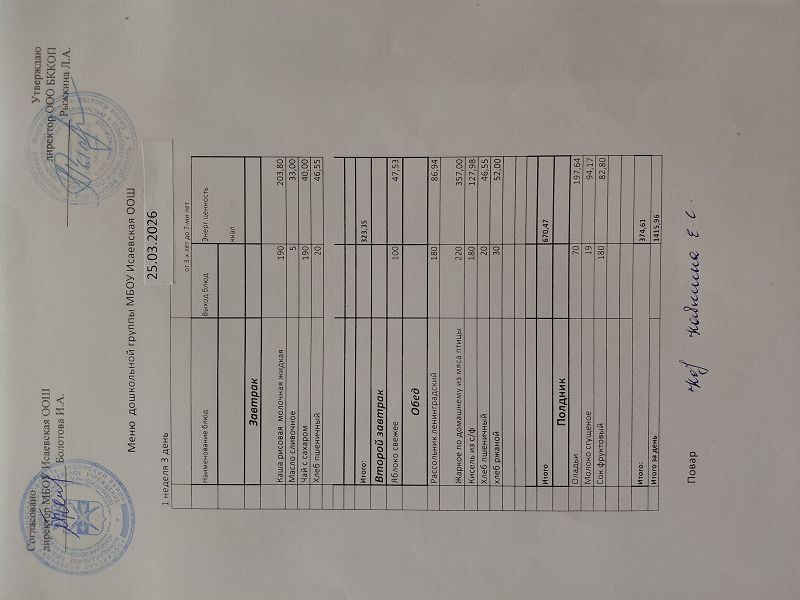 Согласовано
директор МБОУ Исаевская ООШ
Болотова И.А.
Утверждаю
директор ООО БККОП
Рыжкина Л.А.
Меню дошкольной группы МБОУ Исаевская ООШ
25.03.2026
1 неделя 3 день
от 3-х лет до 7-ми лет
Наименование блюд Выход блюд Энерг.ценность
ккал
Завтрак
Каша рисовая молочная жидкая 190 203,80
Масло сливочное 5 33,00
Чай с сахаром 190 40,00
Хлеб пшеничный 20 46,55
Итого: 323,35
Второй завтрак
Яблоко свежее 100 47,53
Обед
Рассольник ленинградский 180 86,94
Жаркое по домашнему из мяса птицы 220 357,00
Кисель из с/ф 180 127,98
Хлеб пшеничный 20 46,55
хлеб ржаной 30 52,00
Итого 670,47
Полдник
Оладьи 70 197,64
Молоко сгущеное 19 94,17
Сок фруктовый 180 82,80
Итого: 374,61
Итого за день 1415,96
Повар Калинина Е С.